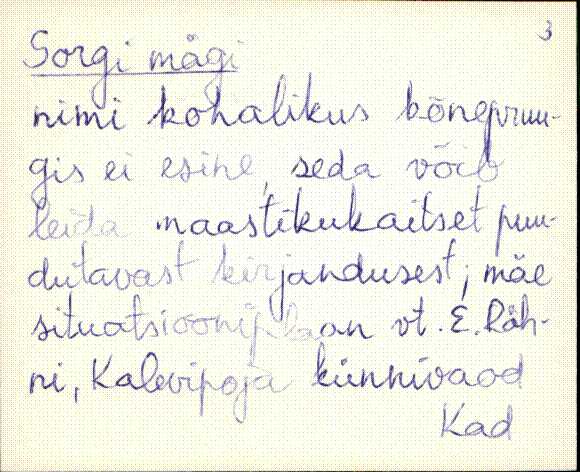 3
Sorgi mägi
nimi kohalikus kõnepruu-
gis ei esine, seda võib
leida maastikukaitset puu-
dutavast kirjandusest; mäe
situatsiooniplaan vt. E. Räh-
ni, Kalevipoja künnivaod
Kad